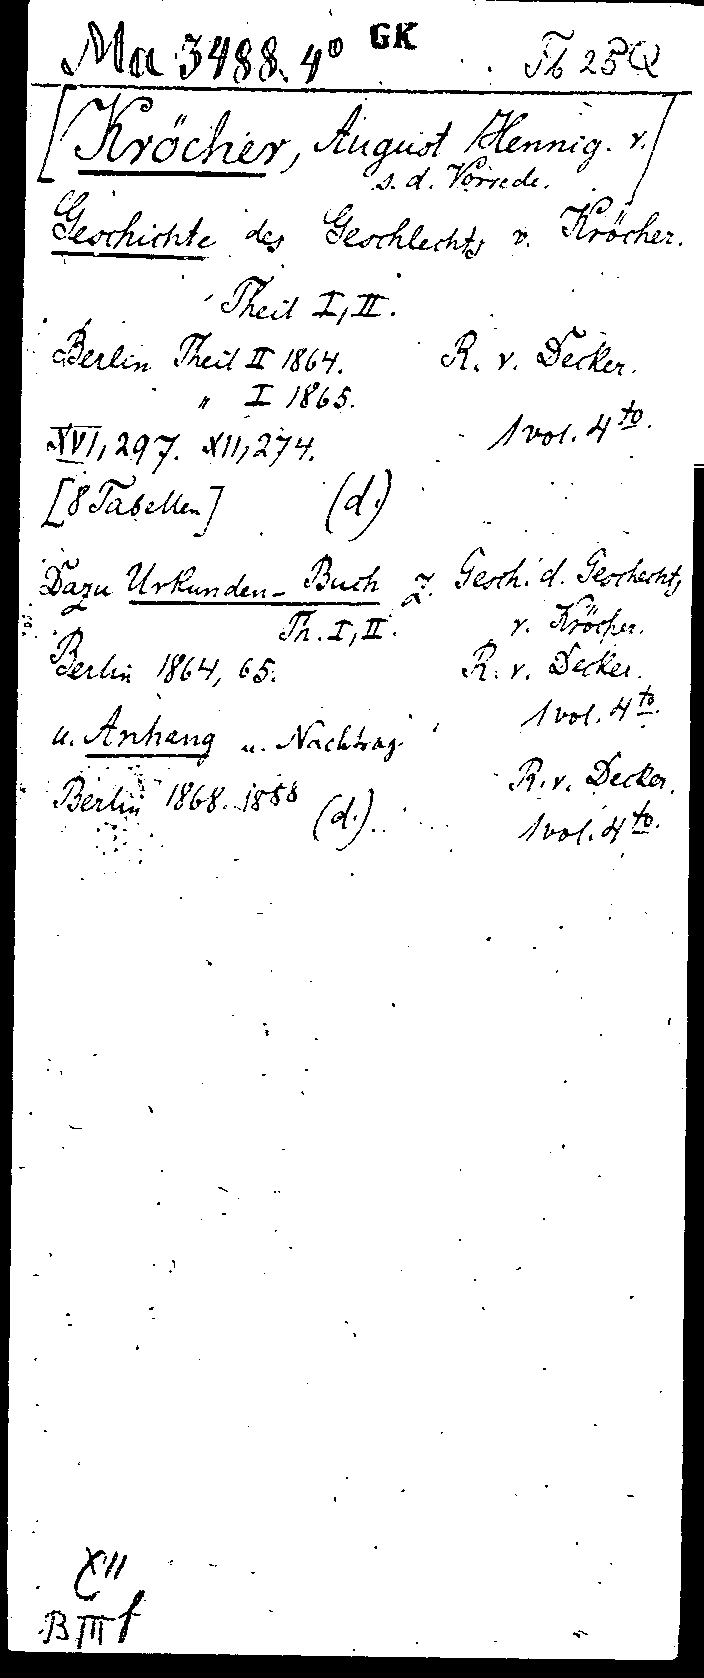 Ma 3488. 4° GK Fb 25 Q
[Kröcher, August Hennig. v.]
s. d. Vorrede.
Geschichte des Geschlechts v. Kröcher.
Theil I, II.
Berlin Theil II 1864. R. v. Decker.
" I 1865.
XVI, 297. XII, 274. 1 vol. 4to.
[8 Tabellen] (d.)
Dazu Urkunden-Buch z. Gesch. d. Geschechts
Th. I, II. v. Kröcher.
Berlin 1864, 65. R. v. Decker.
1 vol. 4to.
u. Anhang u. Nachtrag.
Berlin 1868. 1888 (d.) R. v. Decker.
1 vol. 4to.
XII
B III f